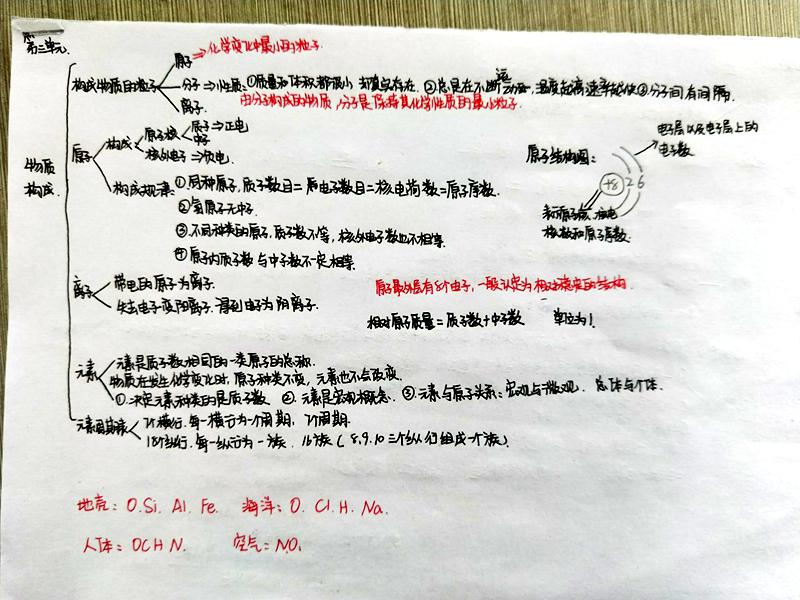 第三单元.
物质构成.
构成物质的粒子
原子⇒化学变化中最小的粒子.
分子⇒性质:①质量和体积都很小 却真实存在.②总是在不断运动,温度越高速率越快③分子间有间隔.
由分子构成的物质,分子是保持其化学性质的最小粒子.
离子.
原子
构成
原子核
质子⇒正电
中子
核外电子⇒负电.
构成规律:①同种原子,质子数目=核电荷数=原子序数.
②氢原子无中子.
③不同种类的原子,质子数不等,核外电子数也不相等.
④原子内质子数与中子数不一定相等.
原子结构图:
+8 2 6
电子层以及电子层上的
电子数
表示原子核,核电
核数和原子序数.
离子
带电的原子为离子.
失去电子变阳离子.得到电子为阴离子.
原子最外层有8个电子,一般认定为相对稳定的结构.
相对原子质量=质子数+中子数 单位为1.
元素
元素是质子数相同的一类原子的总称.
物质在发生化学变化时,原子种类不变,元素也不会改变.
①.决定元素种类的是质子数 ②.元素是宏观概念.③.元素与原子关系:宏观与微观.总体与个体.
元素周期表
7个横行.每一横行为一个周期,7个周期.
18个纵行.每一纵行为一族.16族(8.9.10三个纵行组成一个族)
地壳:O.Si.Al.Fe. 海洋:O.Cl.H.Na.
人体:OCHN. 空气:N.O.